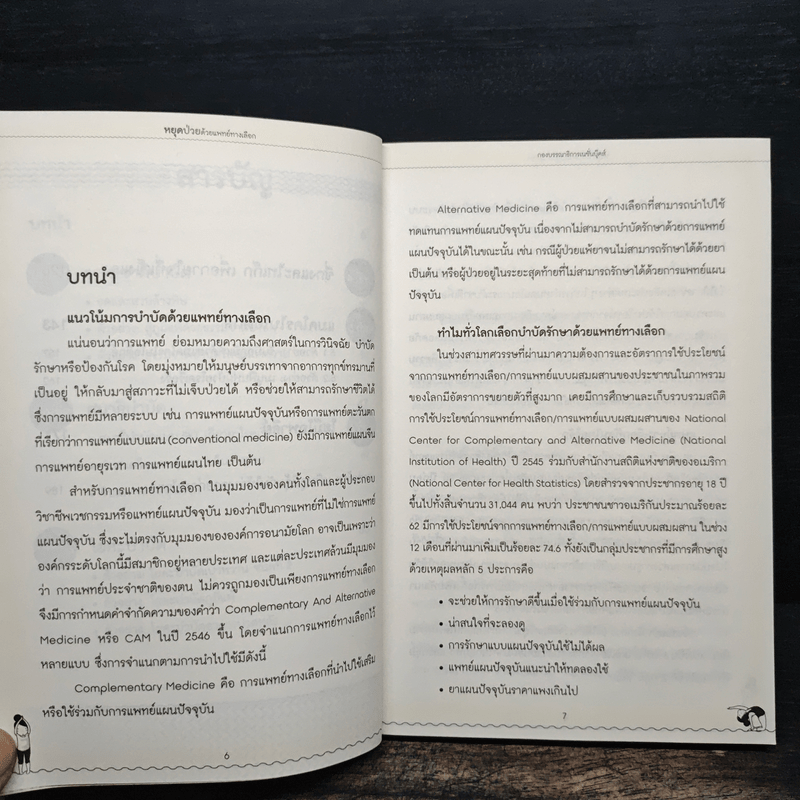 หยุดป่วยด้วยแพทย์ทางเลือก
บทนำ
แนวโน้มการบำบัดด้วยแพทย์ทางเลือก
แน่นอนว่าการแพทย์ ย่อมหมายความถึงศาสตร์ในการวินิจฉัย บำบัด
รักษาหรือป้องกันโรค โดยมุ่งหมายให้มนุษย์บรรเทาจากอาการทุกข์ทรมานที่
เป็นอยู่ ให้กลับมาสู่สภาวะที่ไม่เจ็บป่วยได้ หรือช่วยให้สามารถรักษาชีวิตได้
ซึ่งการแพทย์มีหลายระบบ เช่น การแพทย์แผนปัจจุบันหรือการแพทย์ตะวันตก
ที่เรียกว่าการแพทย์แบบแผน (conventional medicine) ยังมีการแพทย์แผนจีน
การแพทย์อายุรเวท การแพทย์แผนไทย เป็นต้น
สำหรับการแพทย์ทางเลือก ในมุมมองของคนทั้งโลกและผู้ประกอบ
วิชาชีพเวชกรรมหรือแพทย์แผนปัจจุบัน มองว่าเป็นการแพทย์ที่ไม่ใช่การแพทย์
แผนปัจจุบัน ซึ่งจะไม่ตรงกับมุมมองขององค์การอนามัยโลก อาจเป็นเพราะว่า
องค์กรระดับโลกนี้มีสมาชิกอยู่หลายประเทศ และแต่ละประเทศล้วนมีมุมมอง
ว่า การแพทย์ประจำชาติของตน ไม่ควรถูกมองเป็นเพียงการแพทย์ทางเลือก
จึงมีการกำหนดคำจำกัดความของคำว่า Complementary And Alternative
Medicine หรือ CAM ในปี 2546 ขึ้น โดยจำแนกการแพทย์ทางเลือกไว้
หลายแบบ ซึ่งการจำแนกตามการนำไปใช้มีดังนี้
Complementary Medicine คือ การแพทย์ทางเลือกที่นำไปใช้เสริม
หรือใช้ร่วมกับการแพทย์แผนปัจจุบัน
6
กองบรรณาธิการเนชั่นบุ๊คส์
Alternative Medicine คือ การแพทย์ทางเลือกที่สามารถนำไปใช้
ทดแทนการแพทย์แผนปัจจุบัน เนื่องจากไม่สามารถบำบัดรักษาด้วยการแพทย์
แผนปัจจุบันได้ในขณะนั้น เช่น กรณีผู้ป่วยแพ้ยาจนไม่สามารถรักษาได้ด้วยยา
เป็นต้น หรือผู้ป่วยอยู่ในระยะสุดท้ายที่ไม่สามารถรักษาได้ด้วยการแพทย์แผน
ปัจจุบัน
ทำไมทั่วโลกเลือกบำบัดรักษาด้วยแพทย์ทางเลือก
ในช่วงสามทศวรรษที่ผ่านมาความต้องการและอัตราการใช้ประโยชน์
จากการแพทย์ทางเลือก/การแพทย์แบบผสมผสานของประชาชนในภาพรวม
ของโลกมีอัตราการขยายตัวที่สูงมาก เคยมีการศึกษาและเก็บรวบรวมสถิติ
การใช้ประโยชน์การแพทย์ทางเลือก/การแพทย์แบบผสมผสานของ National
Center for Complementary and Alternative Medicine (National
Institution of Health) ปี 2545 ร่วมกับสำนักงานสถิติแห่งชาติของอเมริกา
(National Center for Health Statistics) โดยสำรวจจากประชากรอายุ 18 ปี
ขึ้นไปทั้งสิ้นจำนวน 31,044 คน พบว่า ประชาชนชาวอเมริกันประมาณร้อยละ
62 มีการใช้ประโยชน์จากการแพทย์ทางเลือก/การแพทย์แบบผสมผสาน ในช่วง
12 เดือนที่ผ่านมาเพิ่มเป็นร้อยละ 74.6 ทั้งยังเป็นกลุ่มประชากรที่มีการศึกษาสูง
ด้วยเหตุผลหลัก 5 ประการคือ
• จะช่วยให้การรักษาดีขึ้นเมื่อใช้ร่วมกับการแพทย์แผนปัจจุบัน
• น่าสนใจที่จะลองดู
• การรักษาแบบแผนปัจจุบันใช้ไม่ได้ผล
• แพทย์แผนปัจจุบันแนะนำให้ทดลองใช้
• ยาแผนปัจจุบันราคาแพงเกินไป
7